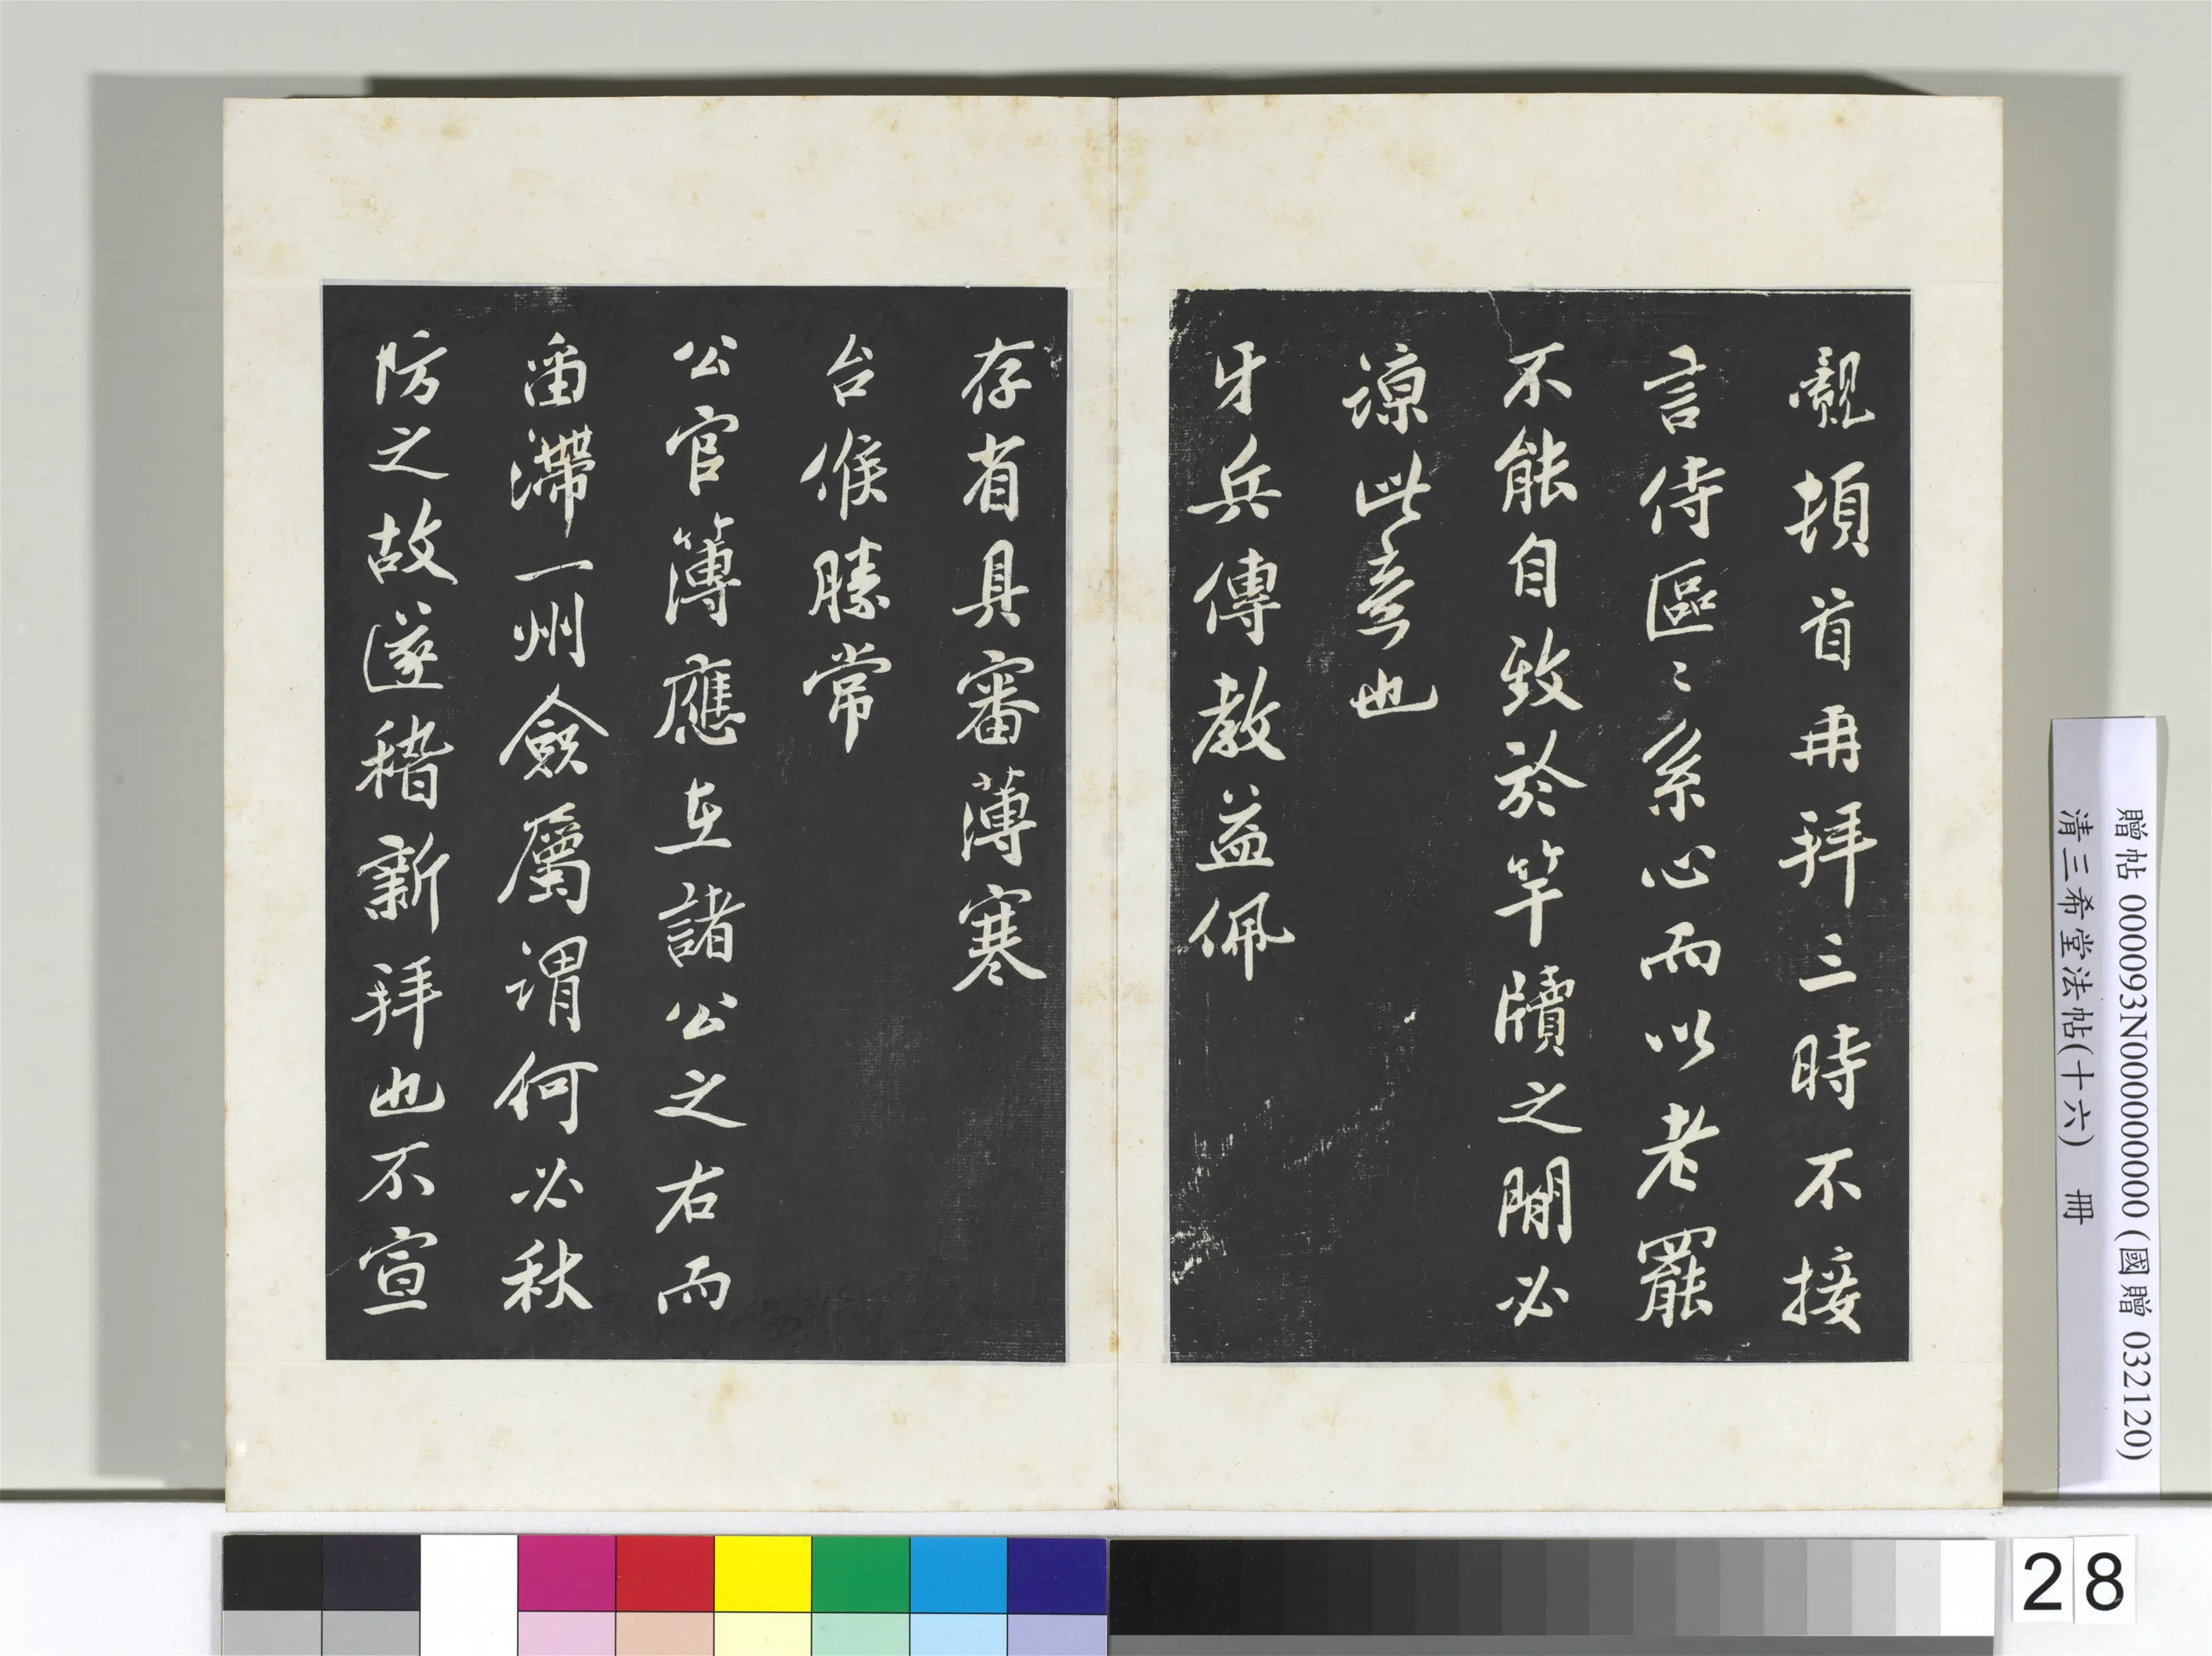 覿頓首再拜三時不接
言侍區〻系心而以老罷
不能自致於竿牘之間必
諒此意也
牙兵傳教益佩
存省具審薄寒
台候勝常
公官簿應在諸公之右而
留滯一州僉屬謂何必秋
防之故遂稽新拜也不宣
贈帖 000093N000000000 (國贈 032120)
清三希堂法帖(十六) 冊
28